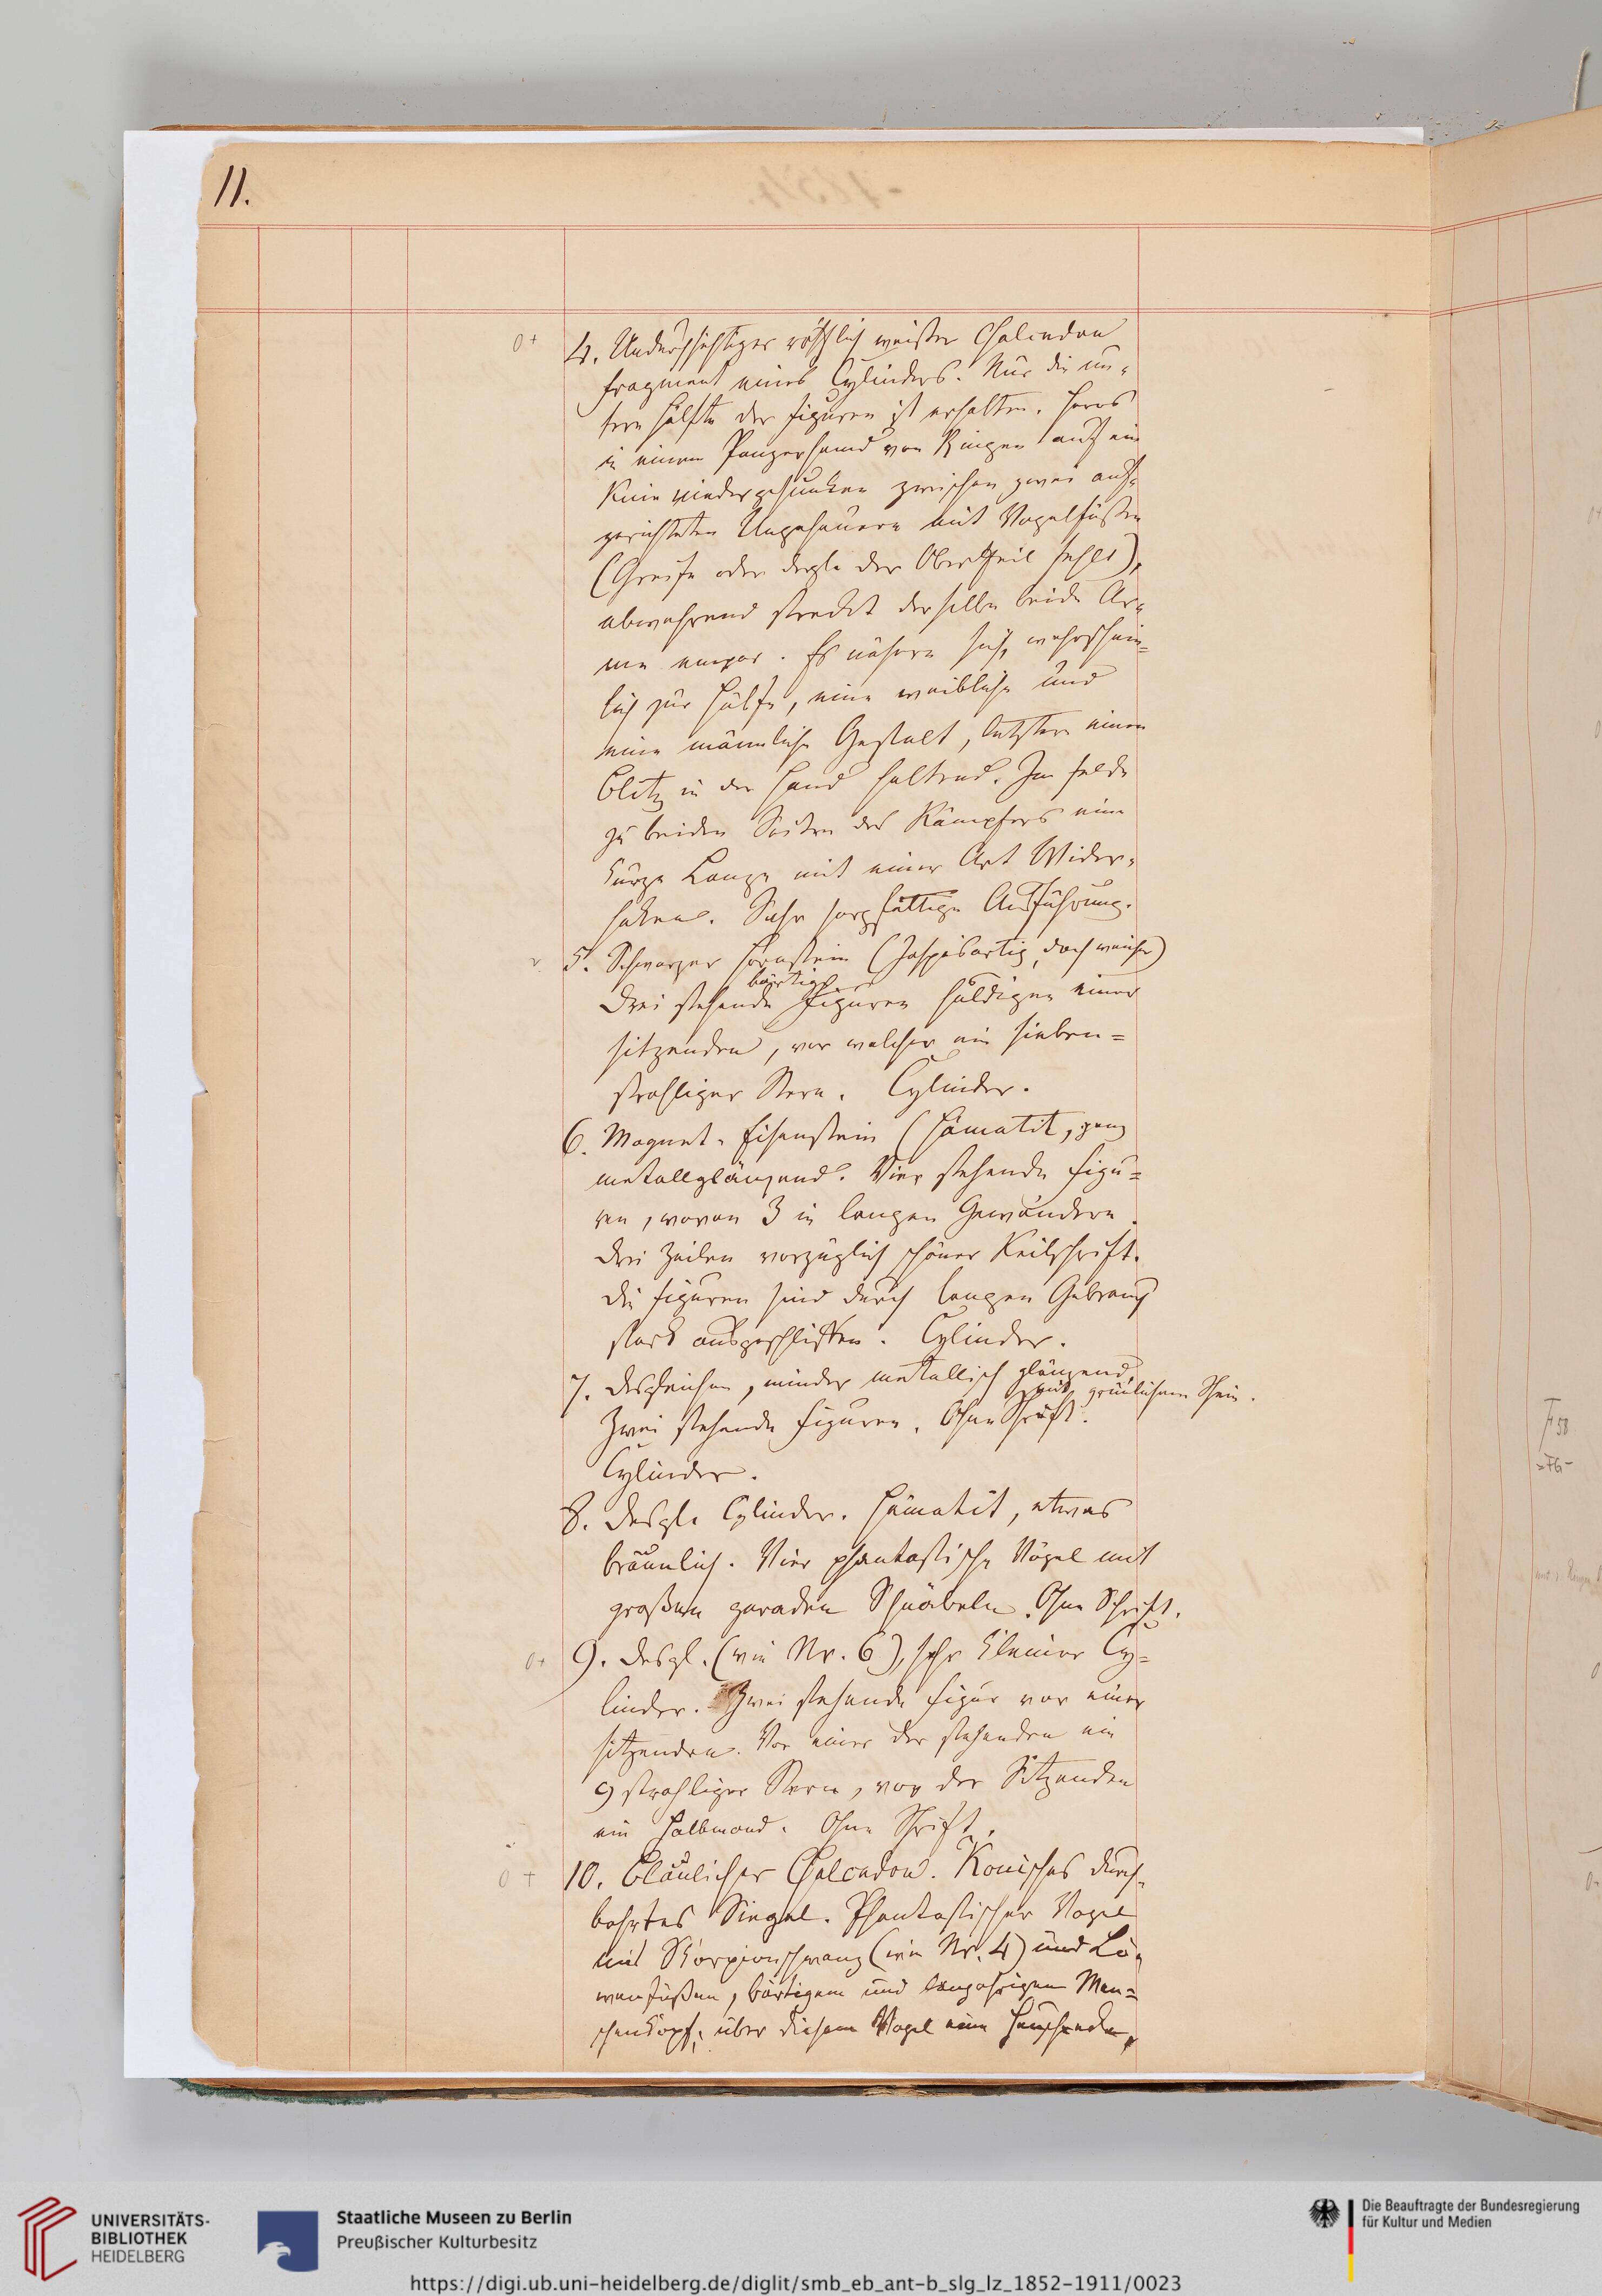 11.
4. Undurchsichtiger röthlich weißer Chalcedon
Fragment eines Cylinders. Nur die un-
tere Hälfte der Figuren ist erhalten. Heros
in einem Panzerhemd von Ringen auf ein
Knie niedergesunken zwischen zwei auf-
gerichteten Ungeheuern mit Vogelfüßen
(Greife oder dergl. der Obertheil fehlt),
abwehrend streckt derselbe beide Ar-
me empor. Es nähern sich, wahrschein-
lich zur Hülfe, eine weibliche und
eine männliche Gestalt, letztere einen
Blitz in der Hand haltend. Im Felde
zu beiden Seiten des Kämpfers eine
kurze Lanze mit einer Art Wider-
haken. Sehr sorgfältige Ausführung.
5. Schwarzer Hornstein (Jaspisartig, doch weicher)
bärtige
Drei stehende Figuren huldigen einer
sitzenden, vor welcher ein sieben=
strahliger Stern. Cylinder.
6. Magnet-Eisenstein (Hämatit, ganz
metallglänzend. Vier stehende Figu=
ren, wovon 3 in langen Gewändern.
Drei Zeilen vorzüglich schöner Keilschrift.
Die Figuren sind durch langen Gebrauch
stark ausgeschliffen. Cylinder.
7. Desgleichen, minder metallisch glänzend,
mit grünlichem Schein.
Zwei stehende Figuren. Ohne Schrift.
Cylinder.
8. Desgl. Cylinder. Hämatit, etwas
bräunlich. Vier phantastische Vögel mit
großen geraden Schnäbeln. Ohne Schrift.
9. Desgl. (wie Nr. 6), sehr kleiner Cy=
linder. Zwei stehende Figur vor einer
sitzenden. Vor einer der stehenden ein
9 strahliger Stern, vor der Sitzenden
ein Halbmond. Ohne Schrift.
10. Bläulicher Chalcedon. Konisches durch-
bohrtes Siegel. Phantastischer Vogel
mit Skorpionschwanz (wie Nr. 4) und Lö-
wenfüßen, bärtigem und langohrigem Men=
schenkopf; über diesem Vogel eine
F 58
UNIVERSITÄTS-
BIBLIOTHEK
HEIDELBERG
Staatliche Museen zu Berlin
Preußischer Kulturbesitz
Die Beauftragte der Bundesregierung
für Kultur und Medien
https://digi.ub.uni-heidelberg.de/diglit/smb_eb_ant-b_slg_lz_1852-1911/0023